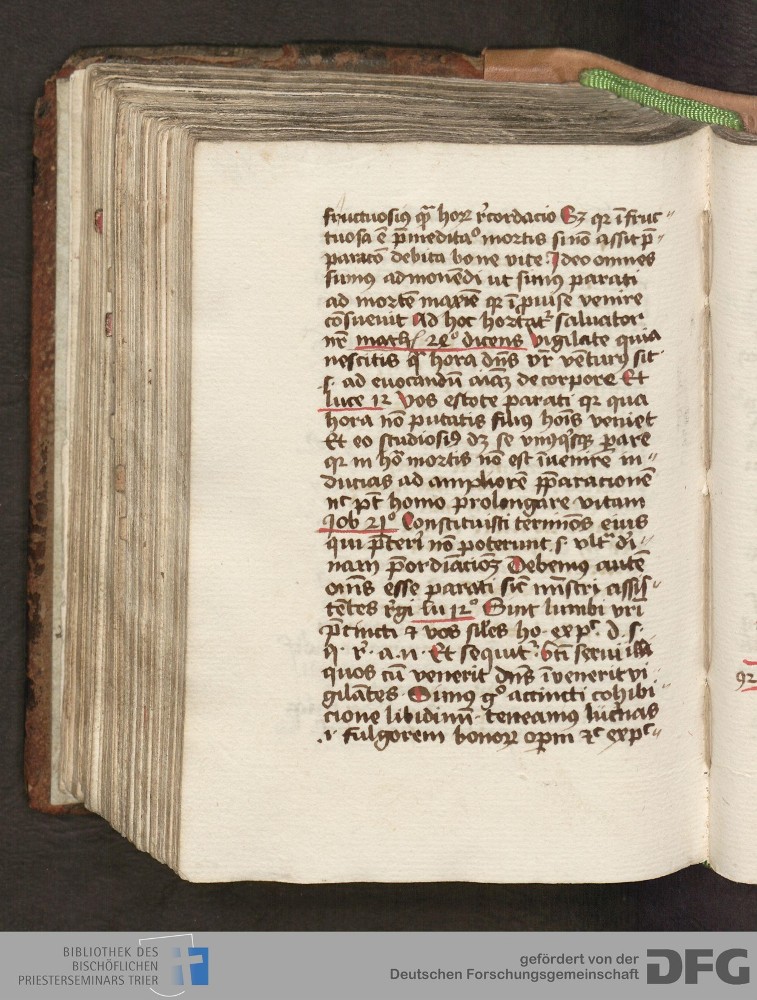 fructuosius qͣ hoꝝ r̄cordacio Sꝫ qꝛ ī fruc〃
tuosa ē p̄meditaᵒ mortis si nō assit p̄〃
paracō debita bone vite. Ideo omnes
sumus admonēdi ut simus parati
ad mortē maxīe qꝛ ī ꝓuise venire
cōsueuit Ad hoc hortatᷣ saluator
nr̄ math 24ᵒ dicens vigilate quia
nescitis qͣ hora dn̄s vr̄ ventuꝝ sit
.s. ad euocandū aīaꝫ de corpore Et
luce 12 Vos estote parati qꝛ qua
hora nō putatis filius hoīs veniet
Et eo studiosiꝰ dꝫ se vnusqͥsqꝫ ꝑare
qꝛ in hōᵃ mortis nō est īuenire in〃
ducias ad ampliorē p̄paracionē
nᶜ pt̄ homo prolongare vitam
Job 21ᵒ Constituisti terminos eius
qui p̄terīri nō poterunt .s. vltᷣ di〃
uinam p̄ordīaciōꝫ Debemus autē
om̄s esse parati sic mīstri assis〃
tētes r̄gi lu 12ᵒ Sint lumbi vr̄i
p̄cincti ⁊ vos siles ho. expᶜ. d. s.
q̇. r̄. a. n. Et sequitᷣ. bt̄i serui illi
quos cū venerit dn̄s īuenerit vi
gilātes Simus gᵒ accincti cohibi
cione libidinū. teneamus lucnas
.i. fulgorem bonoꝝ oꝑm ⁊ᶜ expᶜ〃
92
BIBLIOTHEK DES
BISCHÖFLICHEN
PRIESTERSEMINARS TRIER
gefördert von der
Deutschen Forschungsgemeinschaft
DFG